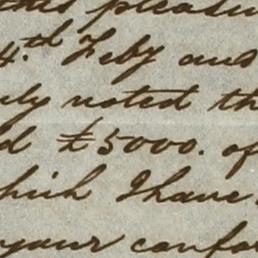 this pleasu
4th Feby and
uly noted th
d £5000. of
hich I have
your confor